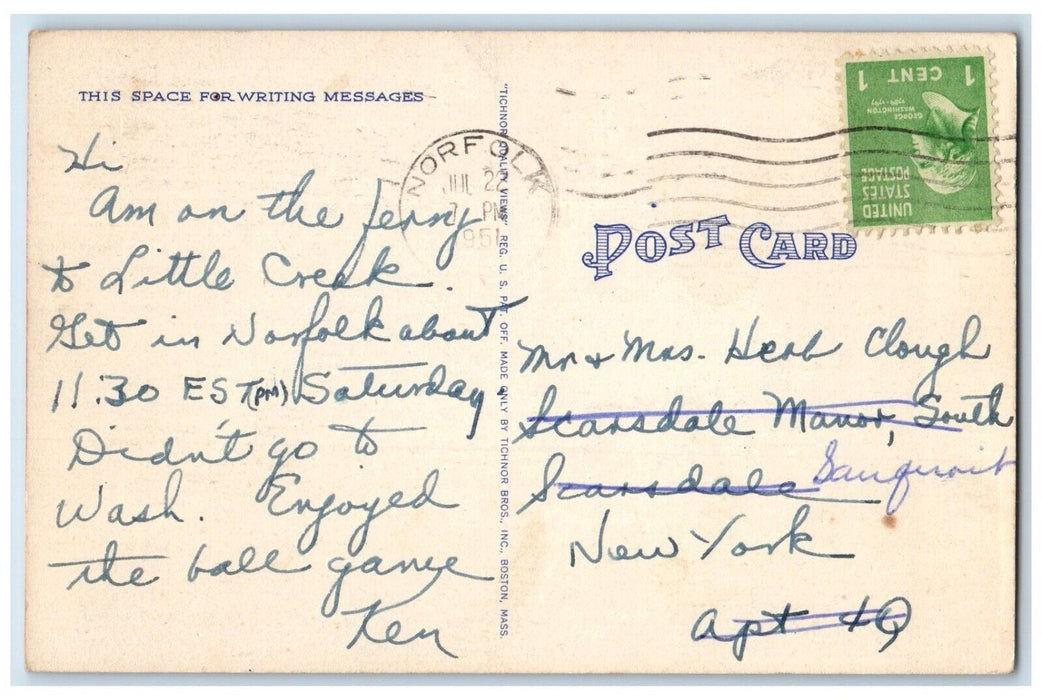 THIS SPACE FOR WRITING MESSAGES
Hi
Am on the ferry
to Little Creek.
Get in Norfolk about
11:30 EST (PM) Saturday
Didn't go to
Wash. Enjoyed
the ball game
Ken
"TICHNOR QUALITY VIEWS" REG. U. S. PAT. OFF. MADE ONLY BY TICHNOR BROS., INC., BOSTON, MASS.
NORFOLK
JUL
PM
UNITED
STATES
POSTAGE
GEORGE
WASHINGTON
1789-1797
1 CENT 1
POST CARD
Mr & Mrs. Herb Clough
Scarsdale Manor, South
Scarsdale Sauquoit
New York
Apt 4Q